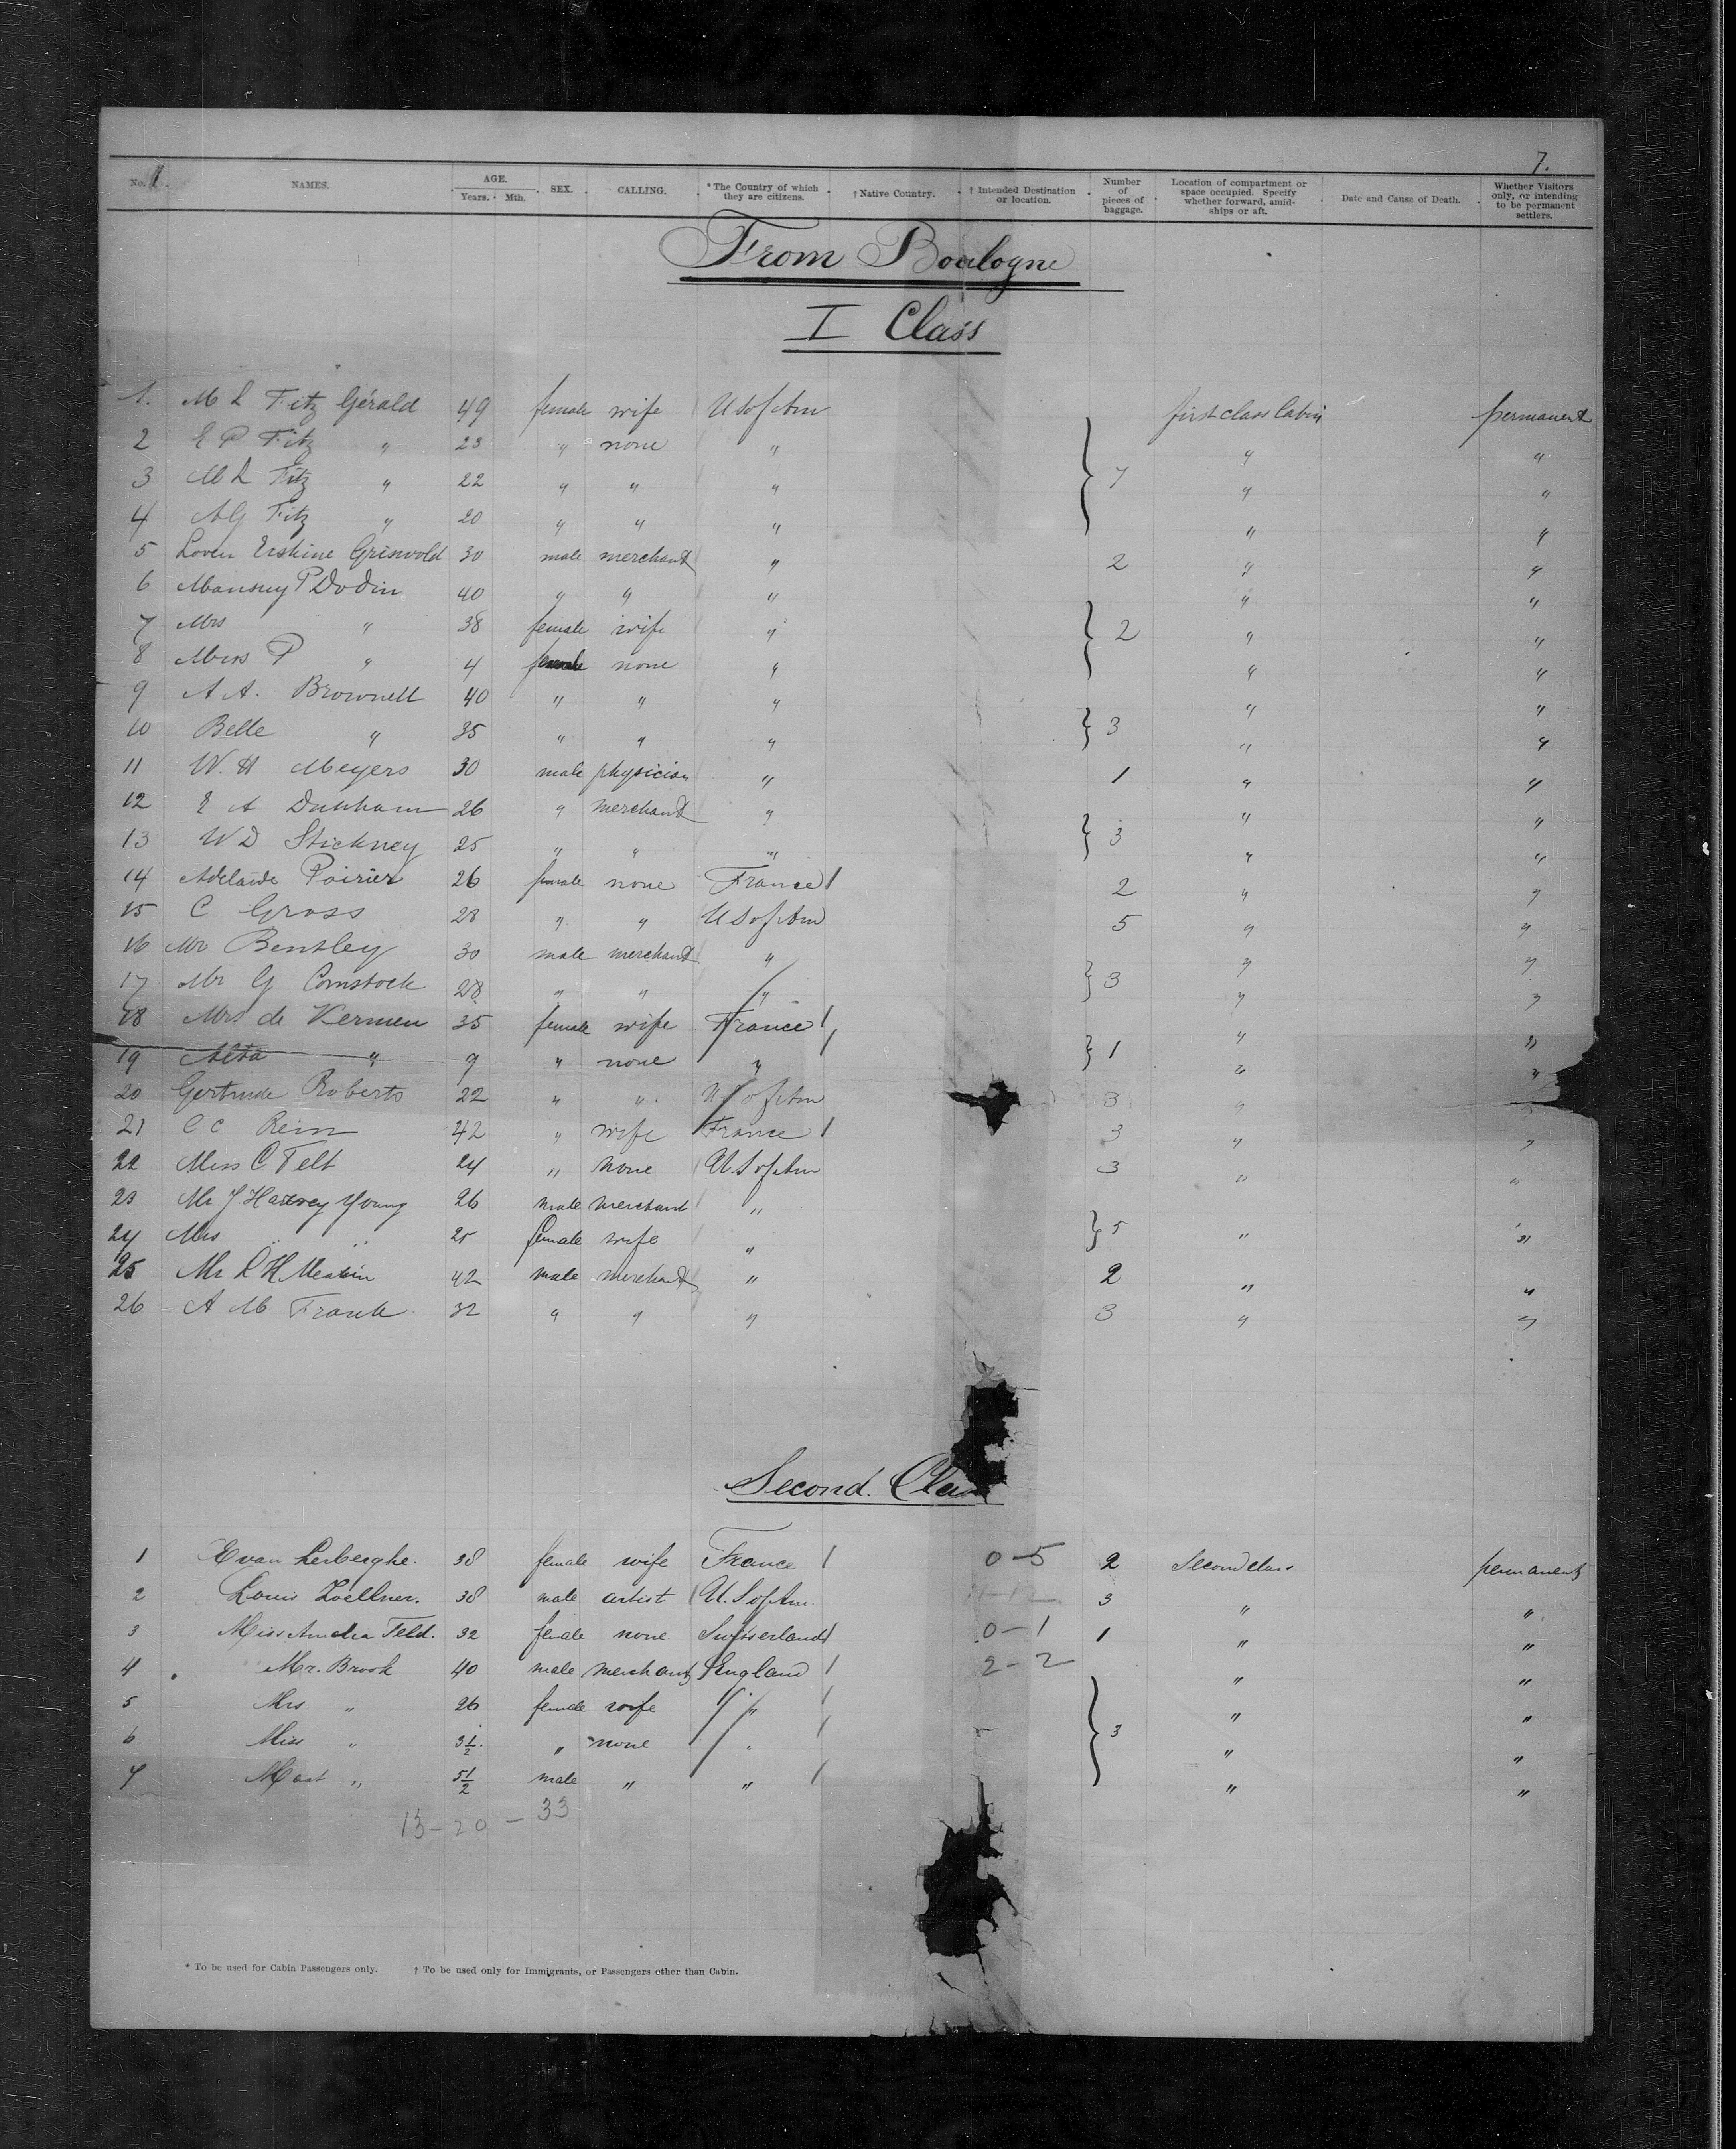 7.
No. 1. NAMES. AGE. Years. Mth. SEX. CALLING. *The Country of which they are citizens. †Native Country. †Intended Destination or location. Number of pieces of baggage. Location of compartment or space occupied. Specify whether forward, amidships or aft. Date and Cause of Death. Whether Visitors only, or intending to be permanent settlers.
From Boulogne
I Class
1. M L Fitz Gérald 49 female wife U S of Am first class Cabin permanent
2 E P Fitz " 23 " none " " "
3 M L Fitz " 22 " " " 7 " "
4 A G Fitz " 20 " " " " "
5 Loren Erskine Griswold 30 male merchant " 2 " "
6 Mansuy P Dodin 40 " " " " "
7 Mrs " 38 female wife " 2 " "
8 Miss P " 4 female none " " "
9 A A. Brownell 40 " " " " "
10 Belle " 35 " " " 3 " "
11 W. H Meyers 30 male physician " 1 " "
12 E A Dunham 26 " merchant " " "
13 W D Stickney 25 " " " 3 " "
14 Adelaïde Poirier 26 female none France 2 " "
15 C Gross 28 " " U S of Am 5 " "
16 Mr Bentley 30 male merchant " " "
17 Mr G Comstock 28 " " " 3 " "
18 Mrs de Kermen 35 female wife France " "
19 Alta " 9 " none " 1 " "
20 Gertrude Roberts 22 " " U S of Am 3 " "
21 C C Rein 42 " wife France 3 " "
22 Miss C Telt 24 " none U S of Am 3 " "
23 Mr J. Harvey Young 26 male merchant "
24 Mrs " " 25 female wife " 5 " "
25 Mr L H Meakin 42 male merchant " 2 " "
26 A M Frank 32 " " " 3 " "
Second. Class
1 E van Lerberghe. 38 female wife France 0-5 2 Second class permanent
2 Louis Zoellner. 38 male artist U. S of Am. 3 " "
3 Miss Amelia Feld. 32 female none Switserland 0-1 1 " "
4 Mr. Brook 40 male merchant England 2-2 " "
5 Mrs " 26 female wife " " "
6 Miss " 3 1/2. " none " 3 " "
7 Mast " 5 1/2 male " " " "
13-20-33
* To be used for Cabin Passengers only. † To be used only for Immigrants, or Passengers other than Cabin.